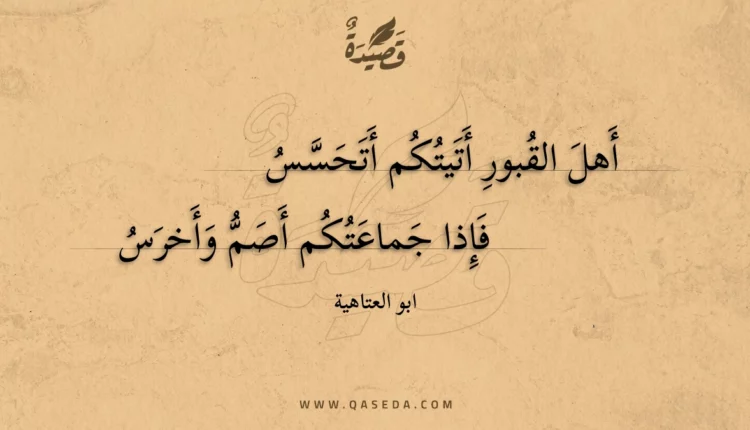 قَصِيْدَةٌ
أَهلَ القُبورِ أَتَيتُكُم أَتَحَسَّسُ
فَإِذا جَماعَتُكُم أَصَمُّ وَأَخرَسُ
ابو العتاهية
WWW.QASEDA.COM